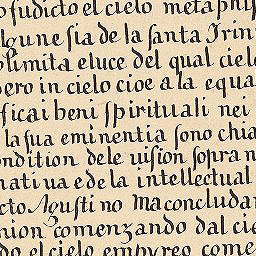 o sudicto el cielo metaphis
lgune sia de la santa Trin
olimita e luce del qual ciel
pero in cielo cioe a la equa
ficai beni spirituali nei
la sua eminentia sono chia
ondition dele uision sopra n
nativa e de la intellectual
cto Agustino ma concludan
nion comenzando dal cie
do el cielo empyreo come